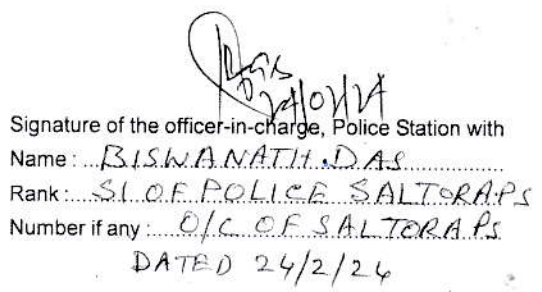 24/02/24
Signature of the officer-in-charge, Police Station with
Name : BISWANATH DAS
Rank : SI OF POLICE SALTORA PS
Number if any : O/C OF SALTORA PS
DATED 24/2/24